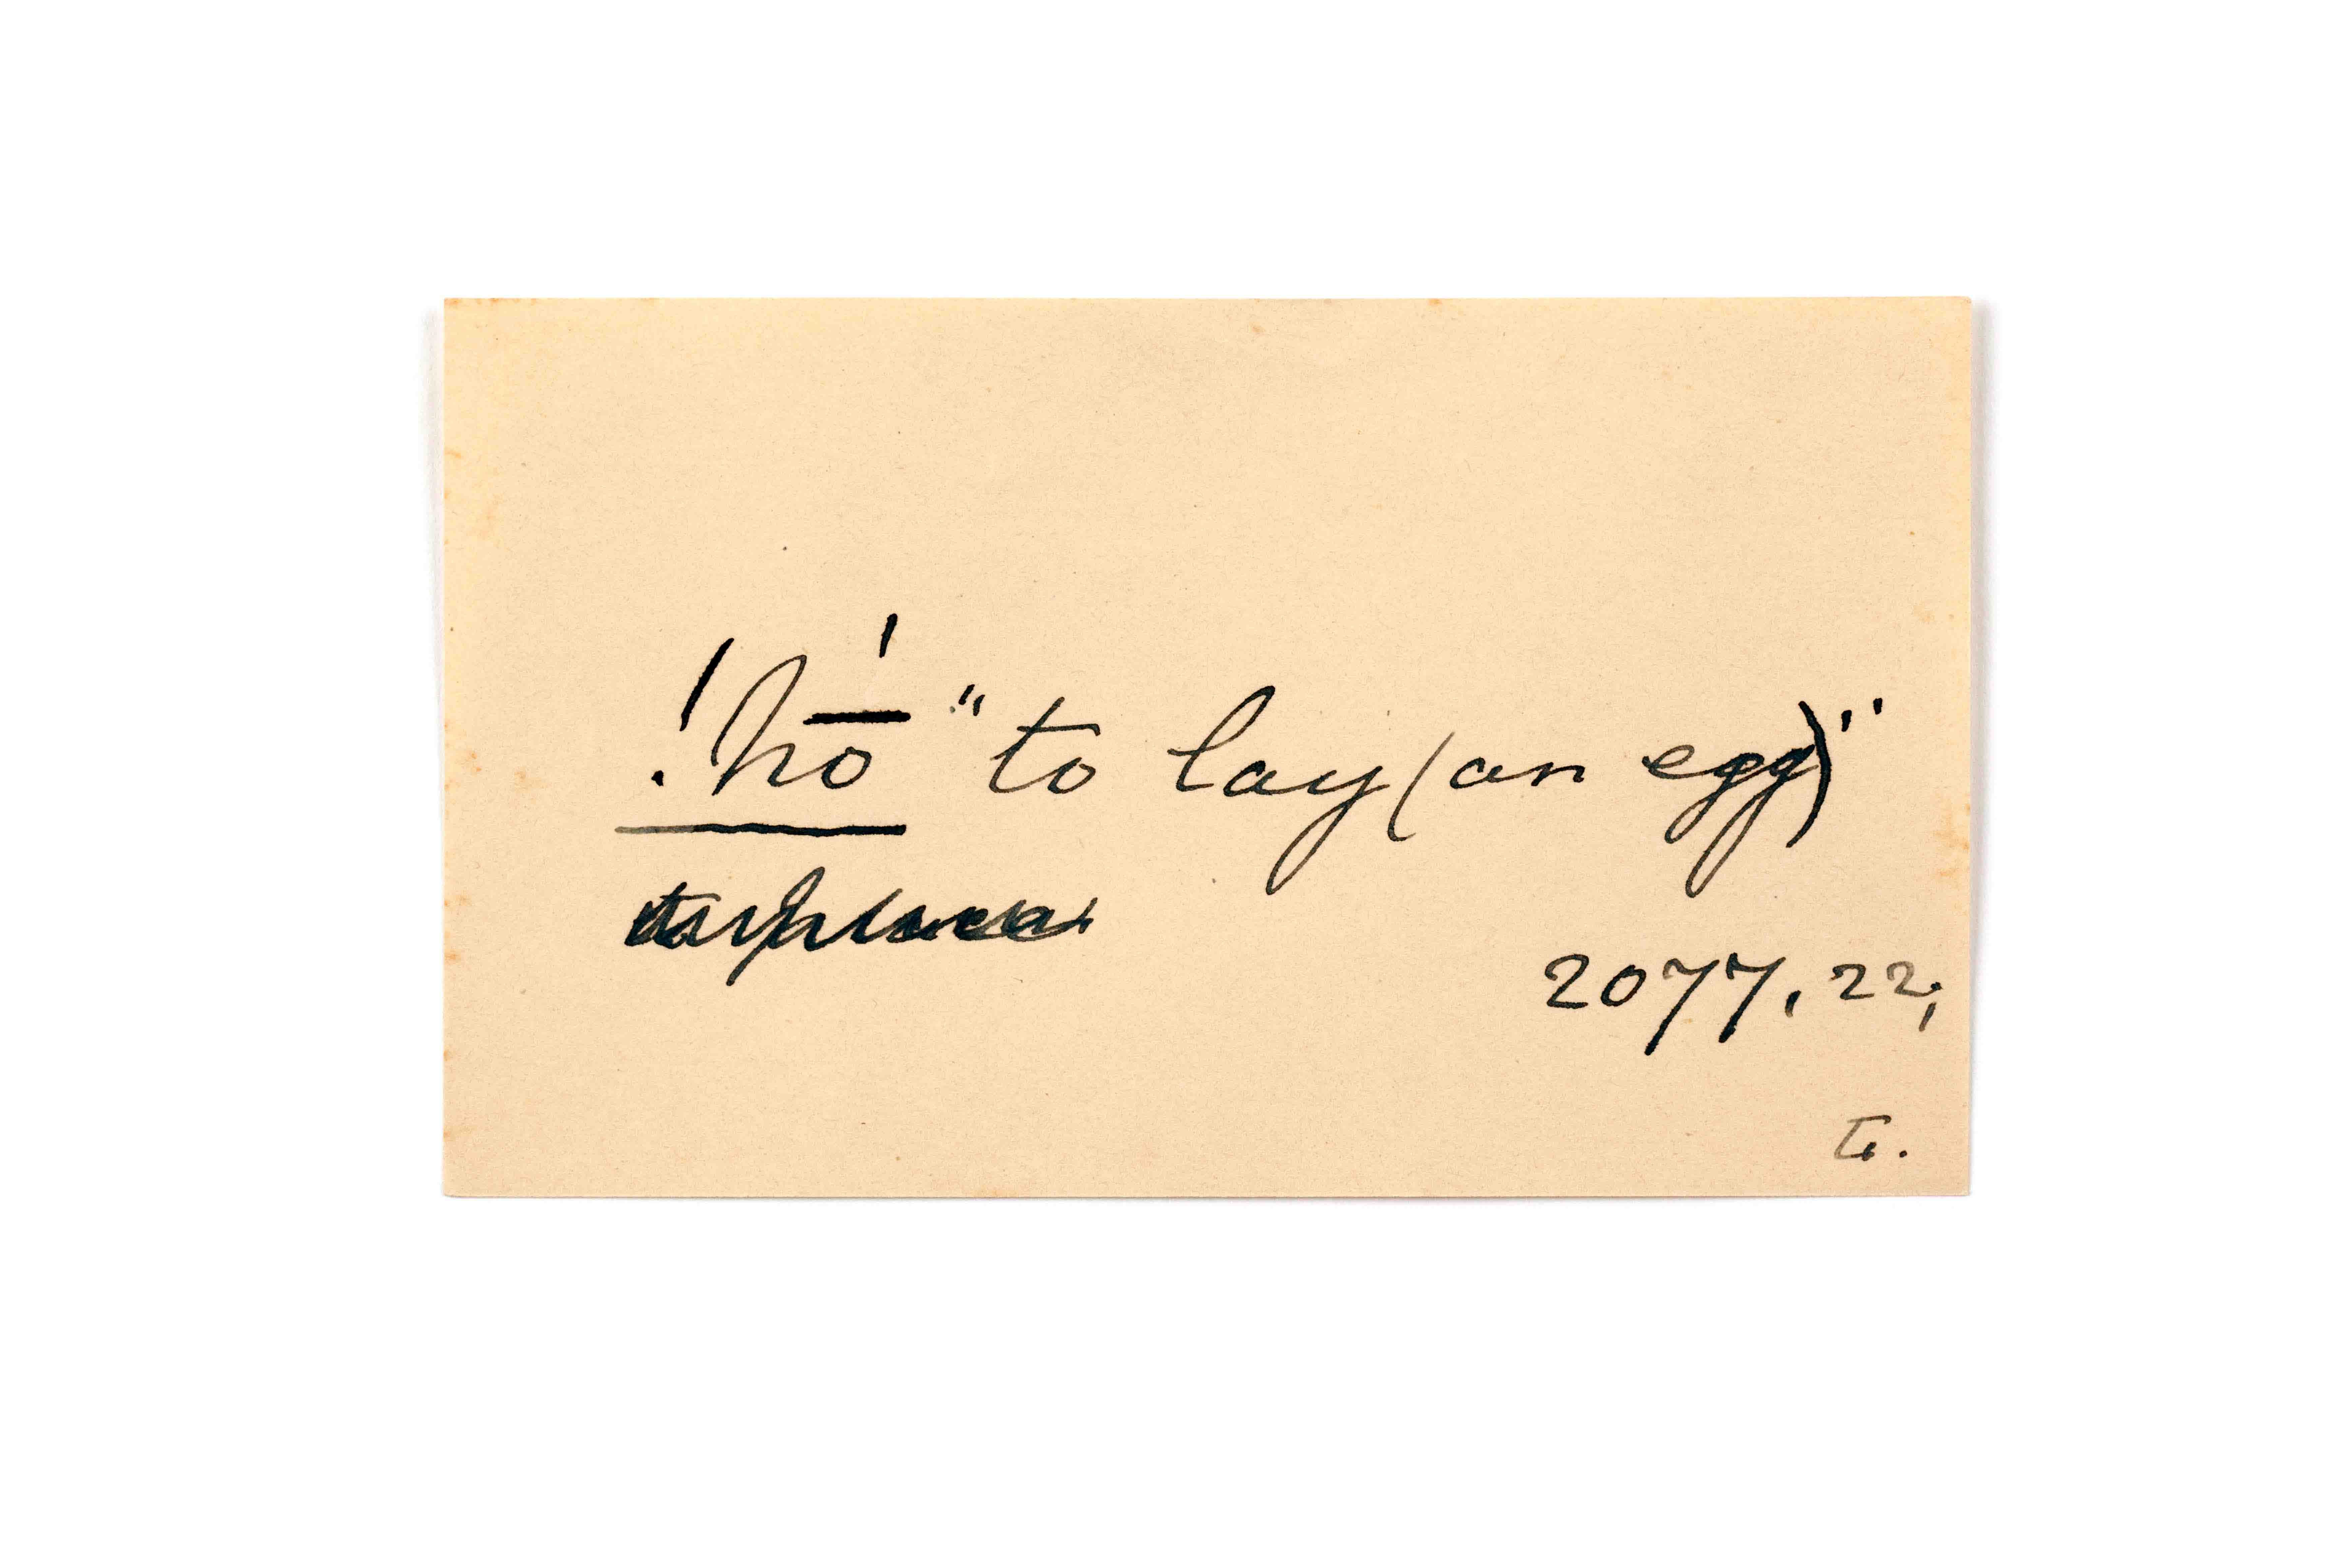 !hṓ "to lay (an egg)"
2077, 22,